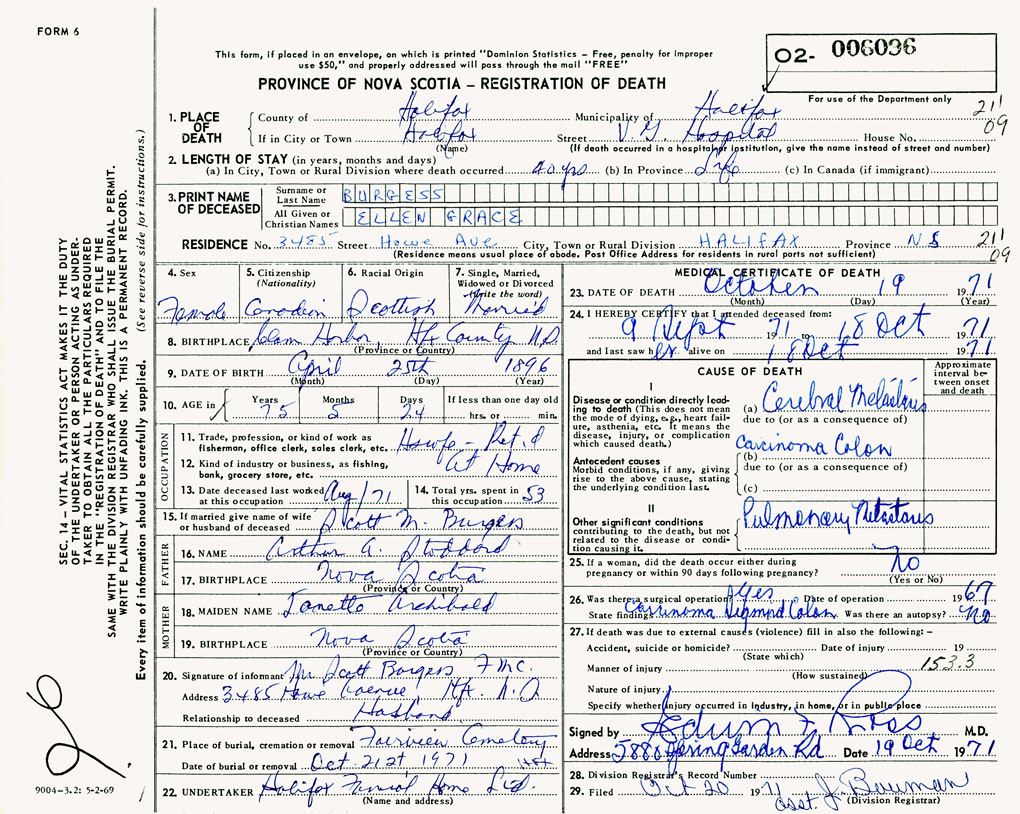 FORM 6
This form, if placed in an envelope, on which is printed "Dominion Statistics – Free, penalty for improper
use $50," and properly addressed will pass through the mail "FREE"
PROVINCE OF NOVA SCOTIA – REGISTRATION OF DEATH
02- 006096
For use of the Department only
211
09
1. PLACE OF DEATH
County of Halifax Municipality of Halifax
If in City or Town Halifax Street V. G. Hospital House No.
(Name) (If death occurred in a hospital or institution, give the name instead of street and number)
2. LENGTH OF STAY (in years, months and days)
(a) In City, Town or Rural Division where death occurred 40 yrs (b) In Province Life (c) In Canada (if immigrant)
3. PRINT NAME OF DECEASED
Surname or Last Name BURGESS
All Given or Christian Names ELLEN GRACE
RESIDENCE No. 3485 Street Howe Ave City, Town or Rural Division HALIFAX Province NS 211
09
(Residence means usual place of abode. Post Office Address for residents in rural parts not sufficient)
4. Sex
Female
5. Citizenship (Nationality)
Canadian
6. Racial Origin
Scottish
7. Single, Married, Widowed or Divorced (Write the word)
Married
8. BIRTHPLACE Clam Harbor Hfx County N.S.
(Province or Country)
9. DATE OF BIRTH April 25th 1896
(Month) (Day) (Year)
10. AGE in Years 75 Months 5 Days 24 If less than one day old hrs. or min.
OCCUPATION
11. Trade, profession, or kind of work as fisherman, office clerk, sales clerk, etc. Hswfe – Ret'd
12. Kind of industry or business, as fishing, bank, grocery store, etc. At Home
13. Date deceased last worked at this occupation Aug/71
14. Total yrs. spent in this occupation 53
15. If married give name of wife or husband of deceased Scott M. Burgess
FATHER
16. NAME Arthur A. Stoddard
17. BIRTHPLACE Nova Scotia
(Province or Country)
MOTHER
18. MAIDEN NAME Janetta Archibald
19. BIRTHPLACE Nova Scotia
(Province or Country)
20. Signature of informant Mr Scott Burgess
Address 3485 Howe Avenue Hfx. N.S
Relationship to deceased Husband
21. Place of burial, cremation or removal Fairview Cemetery
Date of burial or removal Oct 21st 1971
22. UNDERTAKER Halifax Funeral Home Ltd.
(Name and address)
MEDICAL CERTIFICATE OF DEATH
23. DATE OF DEATH October 19 1971
(Month) (Day) (Year)
24. I HEREBY CERTIFY that I attended deceased from:
9 Sept 1971 to 18 Oct 1971
and last saw her alive on 18 Oct 1971
CAUSE OF DEATH
Approximate interval between onset and death
I
Disease or condition directly leading to death (This does not mean the mode of dying, e.g., heart failure, asthenia, etc. It means the disease, injury, or complication which caused death.)
(a) Cerebral Metastasis
due to (or as a consequence of)
Antecedent causes
Morbid conditions, if any, giving rise to the above cause, stating the underlying condition last.
(b) Carcinoma Colon
due to (or as a consequence of)
(c)
II
Other significant conditions contributing to the death, but not related to the disease or condition causing it.
Pulmonary Metastasis
25. If a woman, did the death occur either during pregnancy or within 90 days following pregnancy? No
(Yes or No)
26. Was there a surgical operation? Yes Date of operation 1967
State findings Carcinoma Sigmoid Colon Was there an autopsy? No
27. If death was due to external causes (violence) fill in also the following: –
Accident, suicide or homicide? Date of injury 19
(State which)
Manner of injury 153.3
(How sustained)
Nature of injury
Specify whether injury occurred in industry, in home, or in public place
Signed by Edwin F. Ross M.D.
Address 5880 Spring Garden Rd Date 19 Oct 1971
28. Division Registrar's Record Number
29. Filed Oct 20 1971 Asst. J. Bauman
(Division Registrar)
SEC. 14 – VITAL STATISTICS ACT MAKES IT THE DUTY
OF THE UNDERTAKER OR PERSON ACTING AS UNDER-
TAKER TO OBTAIN ALL THE PARTICULARS REQUIRED
IN THE "REGISTRATION OF DEATH" AND TO FILE THE
SAME WITH THE DIVISION REGISTRAR WHO SHALL ISSUE THE BURIAL PERMIT.
WRITE PLAINLY WITH UNFADING INK. THIS IS A PERMANENT RECORD.
Every item of information should be carefully supplied. (See reverse side for instructions.)
9004-3.2: 5-2-69